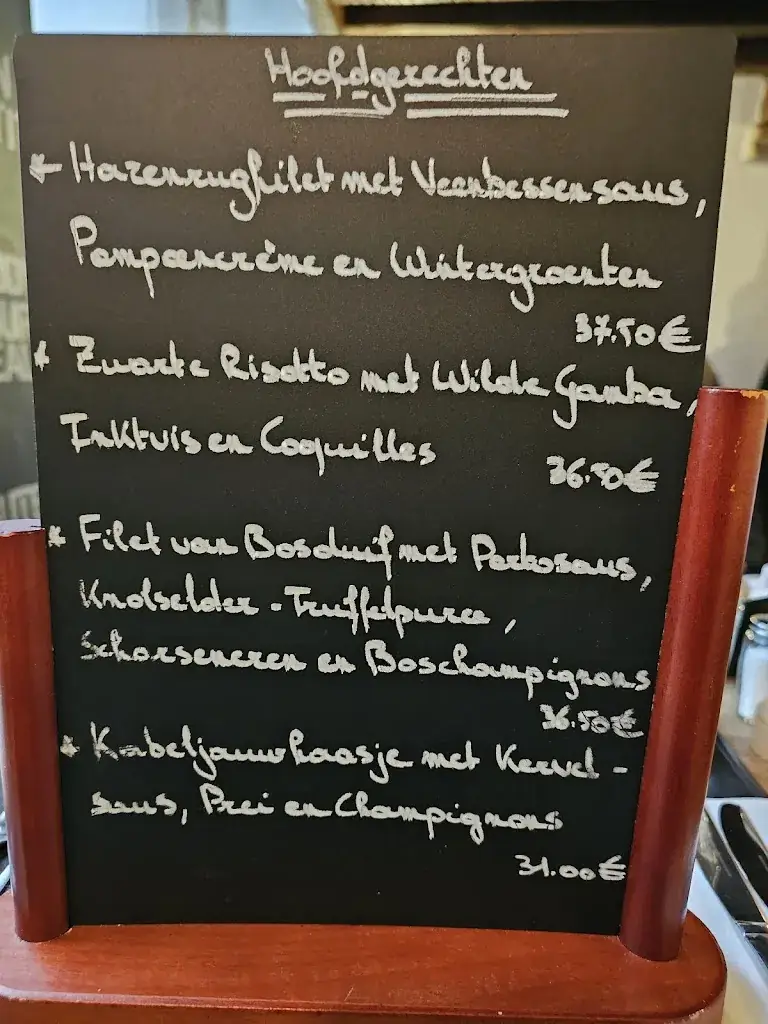 Hoofdgerechten
* Hazenrugfilet met Veenbessensaus,
Pompoencrème en Wintergroenten
37.50€
* Zwarte Risotto met Wilde Gamba,
Inktvis en Coquilles
36.50€
* Filet van Bosduif met Portosaus,
Knolselder-Truffelpuree,
Schorseneren en Boschampignons
36.50€
* Kabeljauwhaasje met Kervel-
saus, Prei en Champignons
31.00€